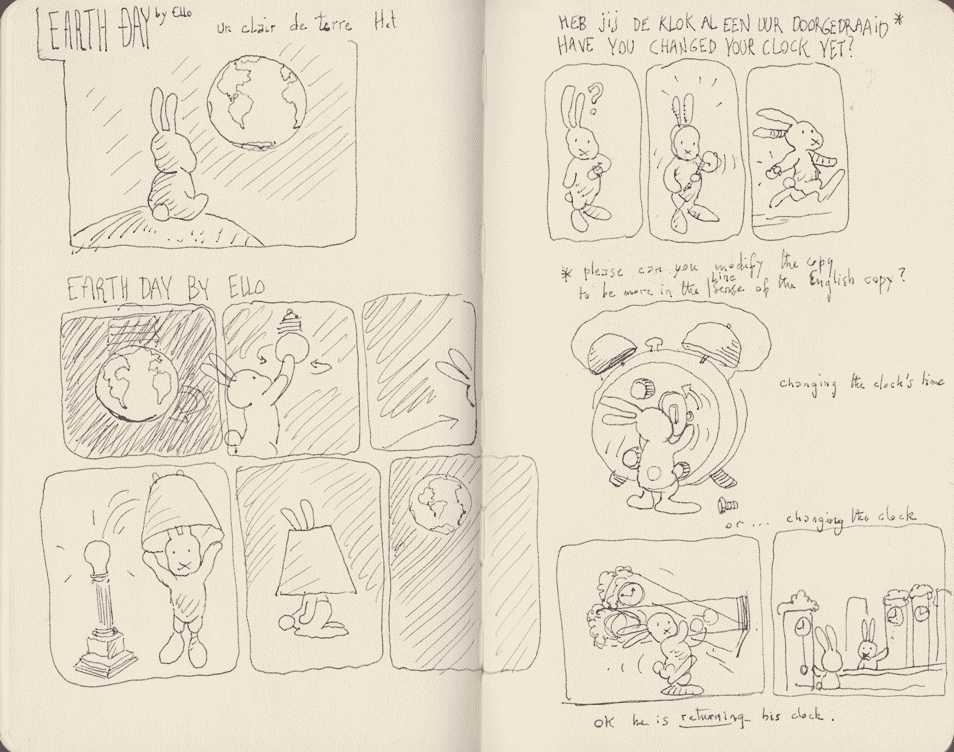 EARTH DAY by Ello
un clair de terre Het
EARTH DAY BY Ello
HEB jij DE KLOK AL EEN UUR DOORGEDRAAID *
HAVE YOU CHANGED YOUR CLOCK YET?
?
* please can you modify the copy
to be more in the line sense of the English copy?
changing the clock's time
or ... changing the clock
OK he is returning his clock.